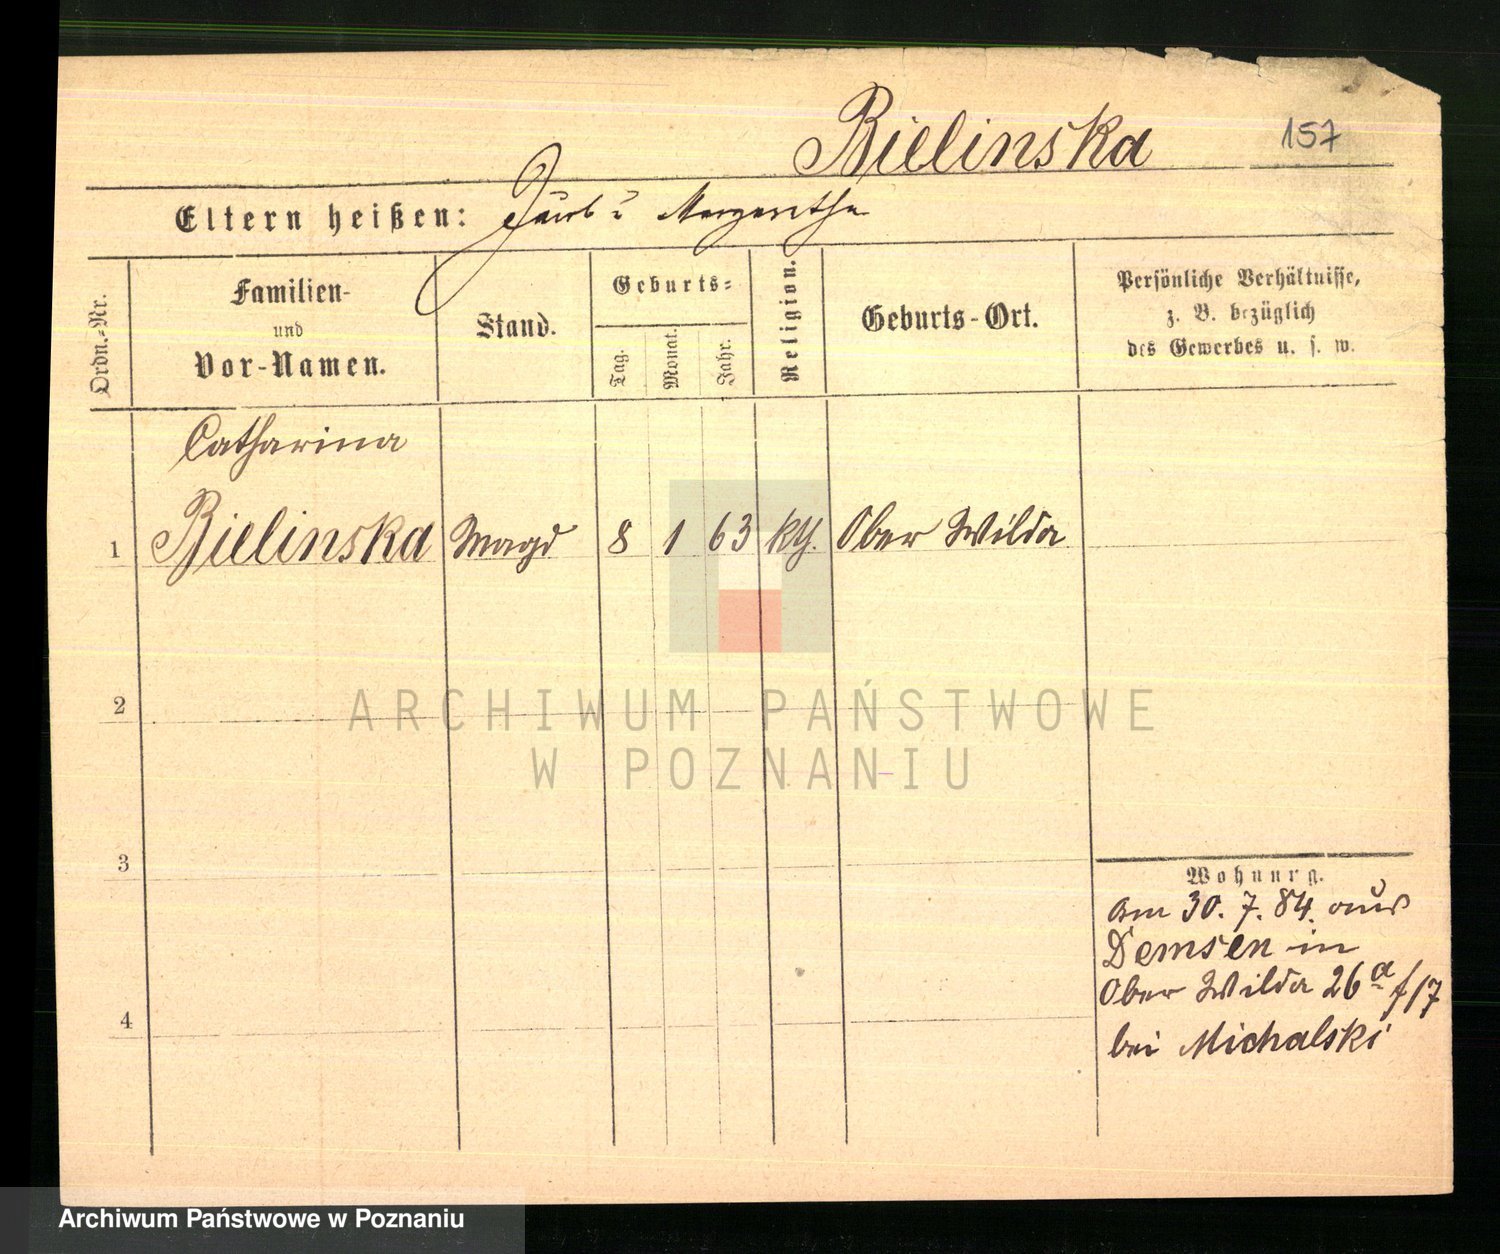 Bielinska 157
Eltern heißen: Jacob u Margaretha
Ordn.-Nr.
Familien-
und
Vor-Namen.
Stand.
Geburts-
Tag.
Monat.
Jahr.
Religion.
Geburts-Ort.
Persönliche Verhältnisse,
z. B. bezüglich
des Gewerbes u. s. w.
Catharina
1 Bielinska Magd 8 1 63 kth. Ober Wilda
2
3
4
Wohnung.
am 30. 7. 84. aus
Demsen in
Ober Wilda 26a
bei Michalski
ARCHIWUM PAŃSTWOWE
W POZNANIU
Archiwum Państwowe w Poznaniu